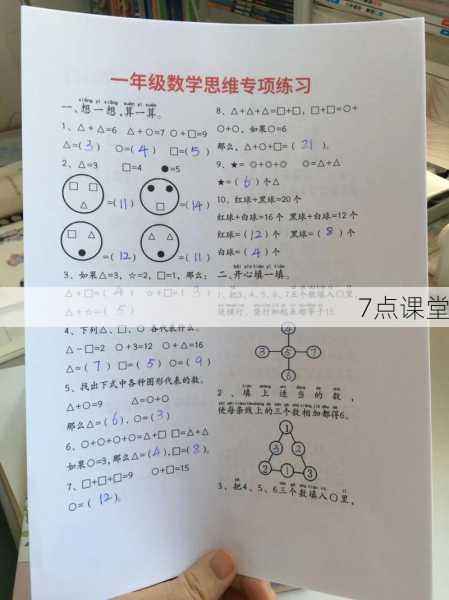 一年级数学思维专项练习
一、想一想，算一算。
1、△+△=6 △+○=7 ○+□=9
△=(3) ○=(4) □=(5)
2、△=3 □=4 ●=5
=(11) =(14)
=(12) =(11)
3、如果△=3，☆=2，□=1，那么：
△+□=(4) ☆+□=(3)
△+☆=(5)
4、下列△、□、○ 各代表什么。
△-□=2 ○+3=12 ○+△=16
△=(7) □=(5) ○=(9)
5、找出下式中各种图形代表的数。
△+○=9 △=○+○
那么△=(6)，○=(3)
6、○+○+○+○=△+□ □=△+△
如果○=3，那么△=(4)，□=(8)。
7、□+□+□=9 ○+□=15
○=(12)。
8、△+△+△=□+□，□+□=○+
○+○，如果○=6
那么，△+○+□=(21)。
9、★=○+○+○ ○=△+△
★=(6)个△
10、红球+黑球=20个
红球+白球=16个 黑球+白球=12个
红球=(12)个 黑球=(8)个
白球=(4)个
二、开心填一填。
1、把3、4、5、6、7五个数填入○里，
使横行、竖行加起来都等于15。
4
3 5 7
6
2、填上适当的数，
使每条线上的三个数相加都得6。
1
3 2
2 1 3
3、把4、5、6三个数填入○里，
7点课堂